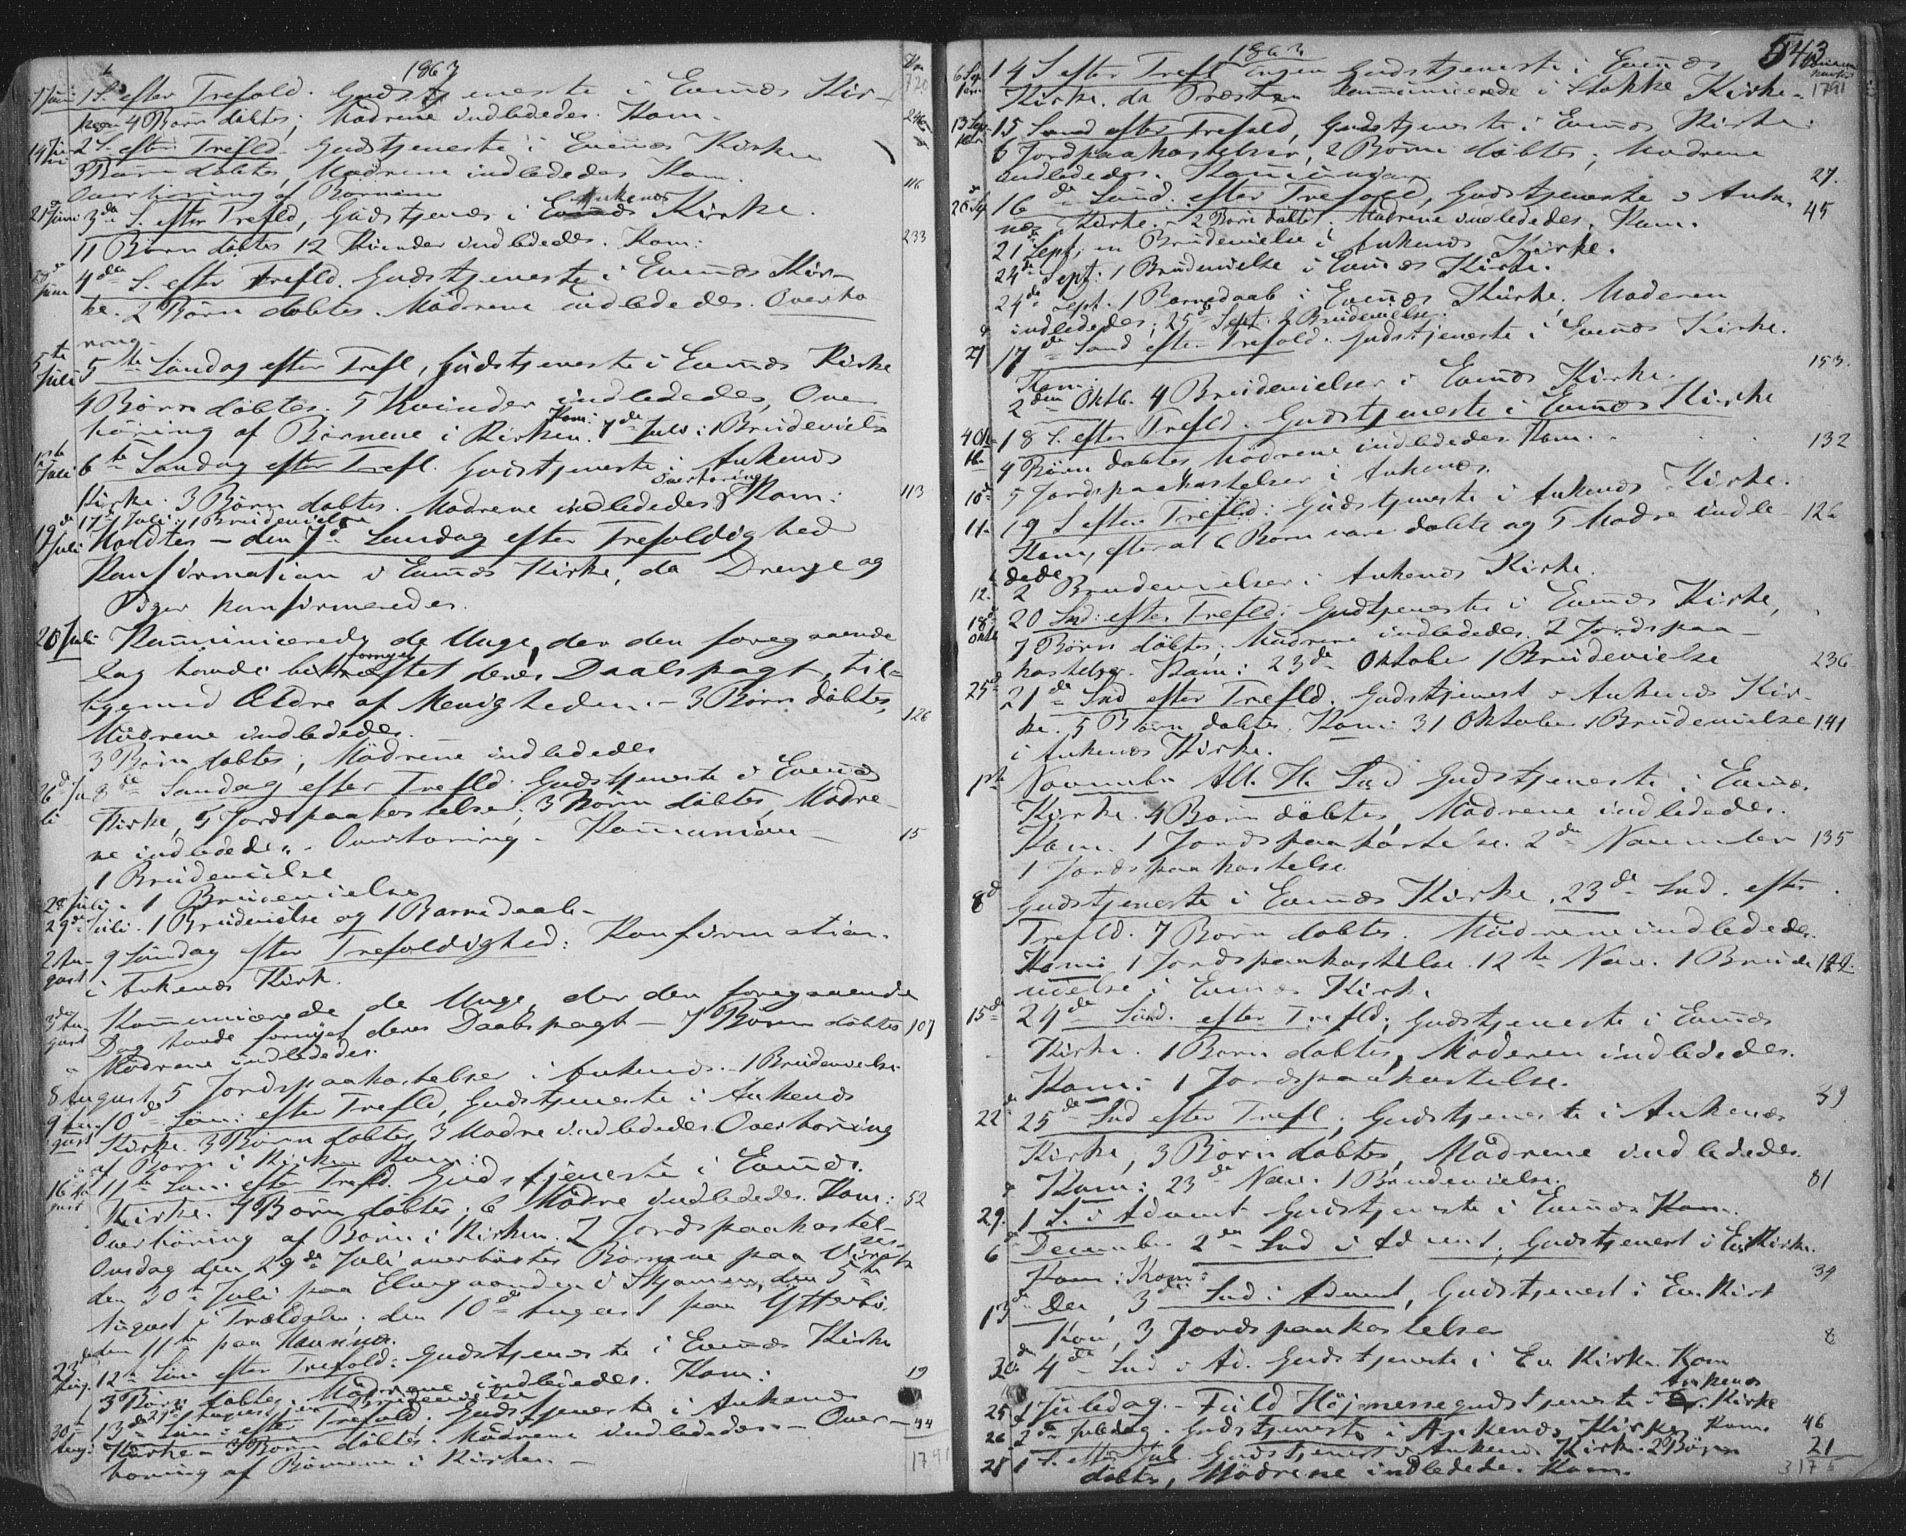 1863
1 Juni 1 S. efter Trefold. Gudstjeneste i Evenæs Kir- 720
4 Børn døbtes; Mødrene indlededes. Kom. 246
14 Juni 2 S. efter Trefld. Gudstjeneste i Evenæs Kirke
3 Børn døbtes, Mødrene indlededes Kom. 116
Overhøring af Børnene
Ankenæs
21 Juni 3die S. efter Trefld, Gudstjenes i Kirke.
11 Børn døbtes 12 Kvinder indlededes. Kom: 233
Juni 4de S. efter Trefld. Gudstjeneste i Evenæs Kir-
ke. 2 Børn døbtes. Mødrene indlededes. Overhø
ring
5te Juli 5te Søndag efter Trefl, Gudstjeneste i Evenæs Kirke
4 Børn døbtes. 5 Kvinder indlededes, Over
høring af Børnene i Kirken. Kom: 7de Juli: 1 Brudevielse
Juli 6te Søndag efter Trefl. Gudstjeneste i Ankenæs
Overhøring
Kirke. 3 Børn døbtes. Mødrene indlededes Kom: 113
17de Juli: 1 Brudevielse
19de Juli Holdtes - den 7de Søndag efter Trefoldighed
Konfirmation i Evenæs Kirke, da Drenge og
Piger konfirmeredes.
20 Juli Kommunicerede de Unge, der den foregaaende
fornyet
Dag havde deres Daabspagt, til-
ligemed Ældre af Menigheden. - 3 Børn døbtes, 126
Mødrene indlededes.
3 Børn døbtes, Mødrene indlededes
26de Juli 8de Søndag efter Trefld. Gudstjeneste i Evenæs
Kirke, 5 Jordspaakastelse, 3 Børn døbtes, Mødre-
ne indlededes. - Overhøring - Kommunion - 15
1 Brudevielse
28 Juli - 1 Brudevielse
29de Juli. 1 Brudevielse og 1 Barnedaab. -
2 August 9 Søndag efter Trefoldighed: Konfirmation.
i Ankenæs Kirk.
3de August Kommunicerede de Unge, der den foregaaende
Dag havde fornyet deres Daabspagt - 7 Børn døbtes 107
Mødrene indlededes.
8 August 5 Jordspaakastelser i Ankenæs. - 1 Brudevielse
9 August 10de Sønd: efter Trefld, Gudstjeneste i Ankenæs
Kirke. 3 Børn døbtes, 3 Mødre indlededes Overhøring
af Børn i Kirken Kom:
16 August 11te Sønd: efter Trefld. Gudstjeneste i Evenæs.
Kirke. 7 Børn døbtes; 6 Mødre indlededes. Kom: 52
Overhøring af Børn i Kirken. 2 Jordspaakastel-
ser
Onsdag den 29de Juli overhørtes Børnene paa
den 30te Juli paa Elvegaarden i Skjomen, den 5te
August i Trældalen. den 10de August paa
den 11te paa
23de Aug. 12te Sønd efter Trefold: Gudstjeneste i Evenæs Kirke
3 Børn døbtes. Mødrene indlededes. Kom: 19
August en Brudevielse
30 Aug: 13de Sønd: efter Trefold, Gudstjeneste i Ankenæs
Kirke. - 3 Børn døbtes. Mødrene indlededes. - Over- 44
høring af Børnene i Kirken. - 1791
1863 543
6 Sep 14 S efter Trefl ingen Gudstjeneste i Evenæs
Kirke. da Præsten kommunicerede i Kirke. 1791
13 Sep 15 Sønd efter Trefold, Gudstjeneste i Evenæs Kirke.
6 Jordpaakastelser, 2 Børn døbtes; Mødrene
indlededes. Kommunion 27.
20 Sep 16de Sønd. efter Trefold, Gudstjeneste i Anke-
næs Kirke. - 2 Børn døbtes, Mødrene indlededes. Kom. 45
21 Sept, en Brudevielse i Ankenæs Kirke.
24de Sept. 1 Brudevielse i Evenæs Kirke.
24de Sept. 1 Barnedaab i Evenæs Kirke. Moderen
indlededes; 25de Sept. 2 Brudevielse.
27 17de Sønd efter Trefold. Gudstjeneste i Evenæs Kirke.
Kom: 153.
2den Oktb. 4 Brudevielser i Evenæs Kirke.
4 Okt 18 S. efter Trefld. Gudstjeneste i Evenæs Kirke
4 Børn døbtes, Mødrene indlededes. Kom. 132
10de 5 Jordspaakastelser i Ankenæs.
11. 19 S efter Trefld: Gudstjeneste i Ankenæs Kirke.
Kom, efter at 6 Børn vare døbte og 5 Mødre indle- 126
dede
12. 2 Brudevielser i Ankenæs Kirke.
18de Oktb 20 Snd: efter Trefld: Gudstjeneste i Evenæs Kirke,
7 Børn døbtes, Mødrene indlededes. 2 Jordspaa-
kastelser. Kom: 23de Oktober 1 Brudevielse 236
25de 21de Snd efter Trefld. Gudstjenest i Ankenæs Kir-
ke. 5 Børn døbtes. Kom: 31 Oktober 1 Brudevielse 141
i Ankenæs Kirke.
1ste November Alle H. Snd Gudstjeneste i Evenæs
Kirke. 4 Børn døbtes, Mødrene indlededes.
Kom. 1 Jordspaakastelse. 2de November 135
1 Jordspaakastelse
8de Gudstjeneste i Evenæs Kirke. 23de Snd. efter
Trefld. 7 Børn døbtes. Mødrene indlededes.
Kom: 1 Jordspaakastelse. 12te Nov. 1 Brude
vielse i Evenæs Kirke
15de 24de Sønd. efter Trefld; Gudstjeneste i Evenæs
Kirke. 1 Barn døbtes, Moderen indlededes.
Kom: 1 Jordspaakastelse.
22de 25de Snd efter Trefl; Gudstjeneste i Ankenæs 59
Kirke, 3 Børn døbtes, Mødrene indlededes.
Kom: 23de Nov. 1 Brudevielse 81
29. 1 S. i Advent Gudstjeneste i Evenæs Kom.
6 December 2den Snd i Advent, Gudstjenest i Ev Kirke.
Kom: Kom: 39
13de Dec, 3die Snd i Advent, Gudstjenest i Ev. Kirk
Kom, 3 Jordspaakastelser 8
20 4de Snd i Ad. Gudstjeneste i Ev. Kirke. Kom
Ankenæs
25 1 Juledag. - Fuld Højmessegudstjeneste i Kirke
26 2den Juledag. Gudstjeneste i Ankenæs Kirke, Kom. 46
28 1 S. efter Jul. Gudstjenest i Ankenæs Kirk. 2 Børn 21
døbtes, Mødrene indlededes. Kom. 3175